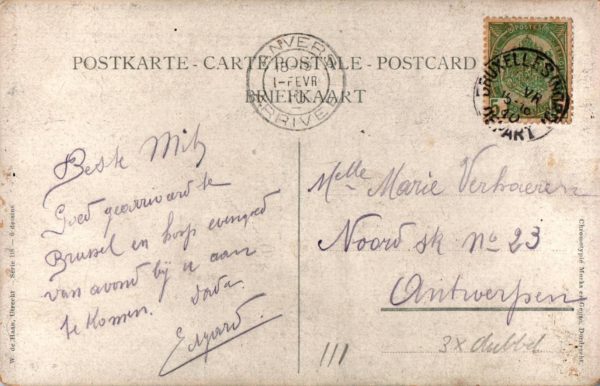 POSTKARTE - CARTE POSTALE - POSTCARD
BRIEFKAART
ANVERS
1-FEVR
10
ARRIVEE
POSTES
BRUXELLES
VR
10
DEPART
Beste Mil
Goed gearriveerd te
Brussel en hoop evengoed
van avond bij u aan
te komen. Dada.
Edgard.
Melle Marie Verhaeren
Noord sk no 23
Antwerpen
111
3x dubbel
W. de Haan, Utrecht - Serie 18 - 6 dessins
Chromotypie Morks en Geuze, Dordrecht.